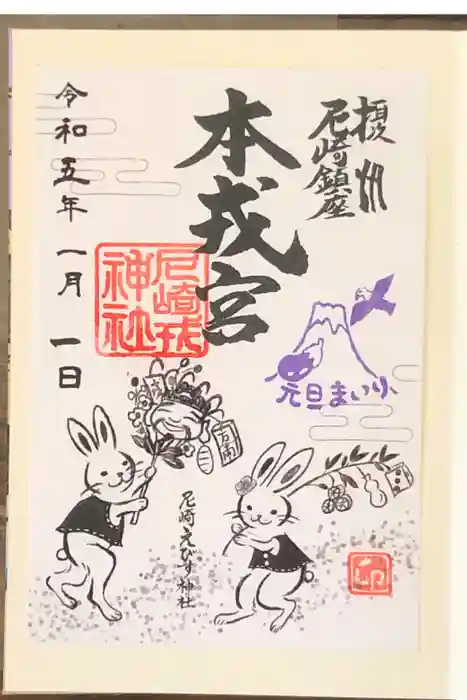 摂州
尼崎鎮座
本戎宮
尼崎戎
神社
令和五年一月一日
元旦まいり
万両
尼崎えびす神社
卯